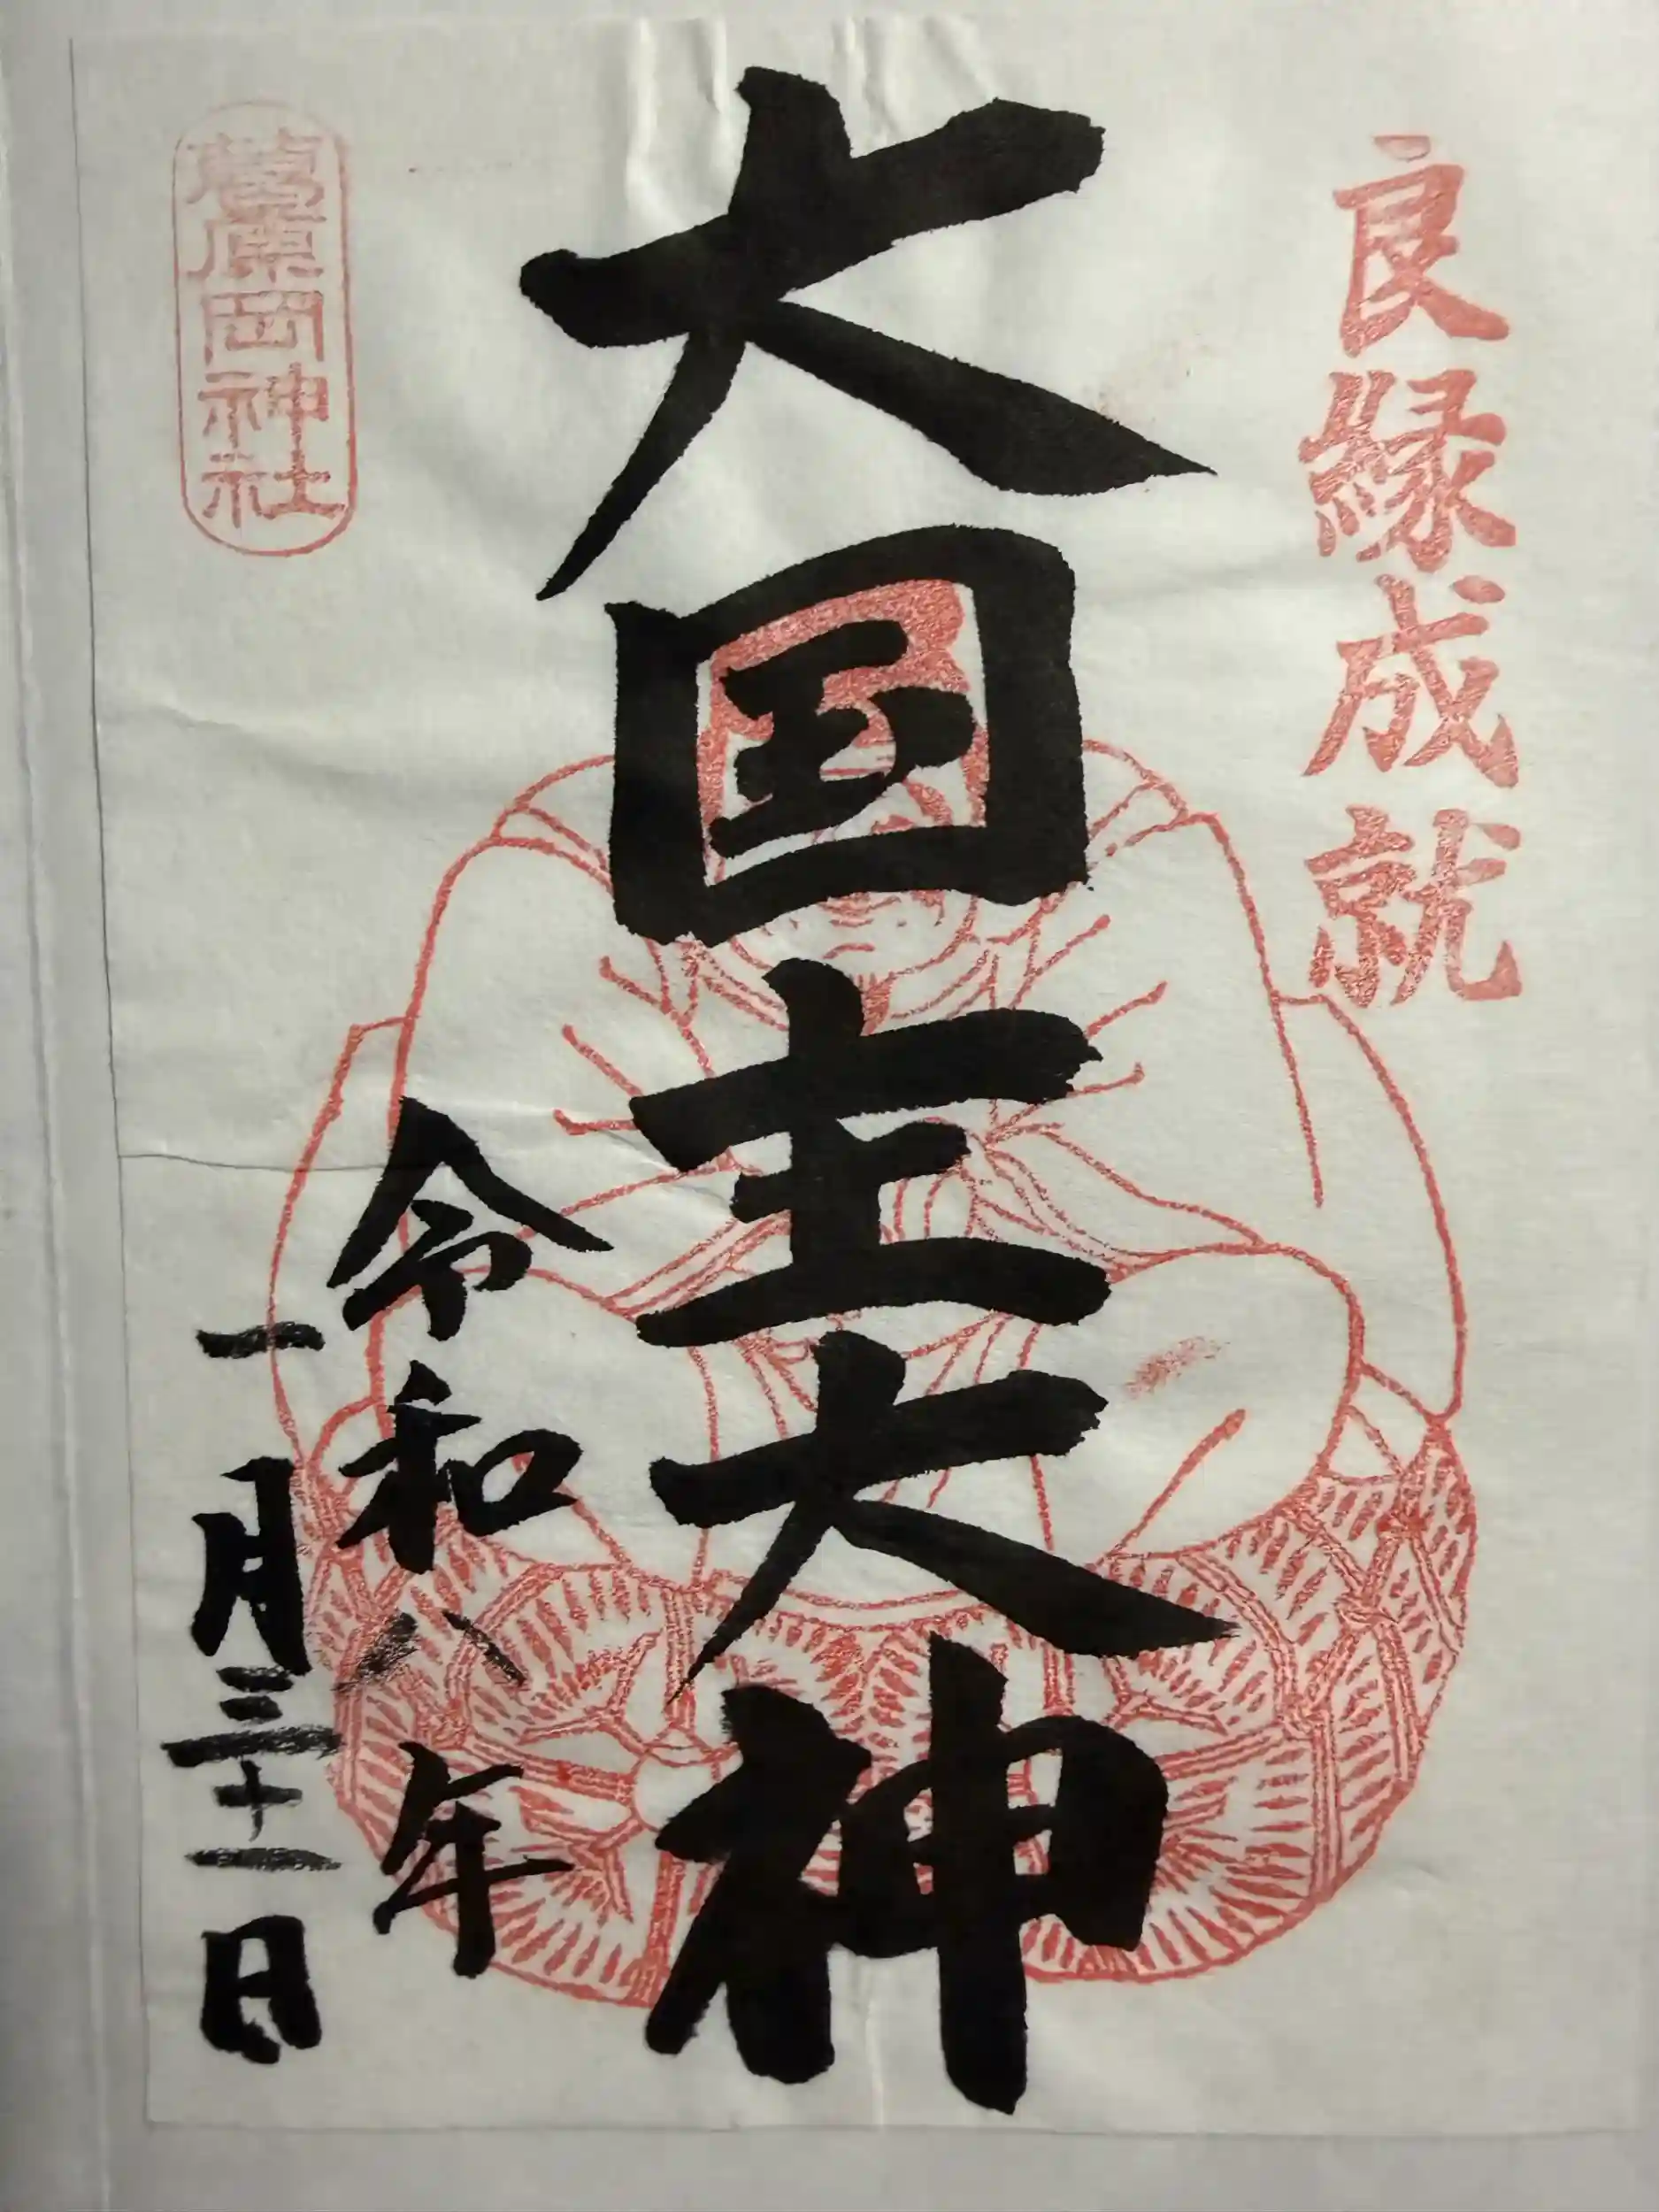 良縁成就
大国主大神
令和八年
一月三十一日
葛原岡神社